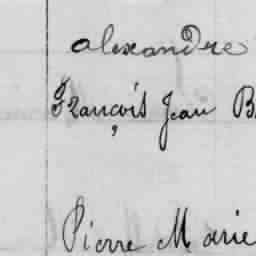 alexandre
François Jean
Pierre Marie